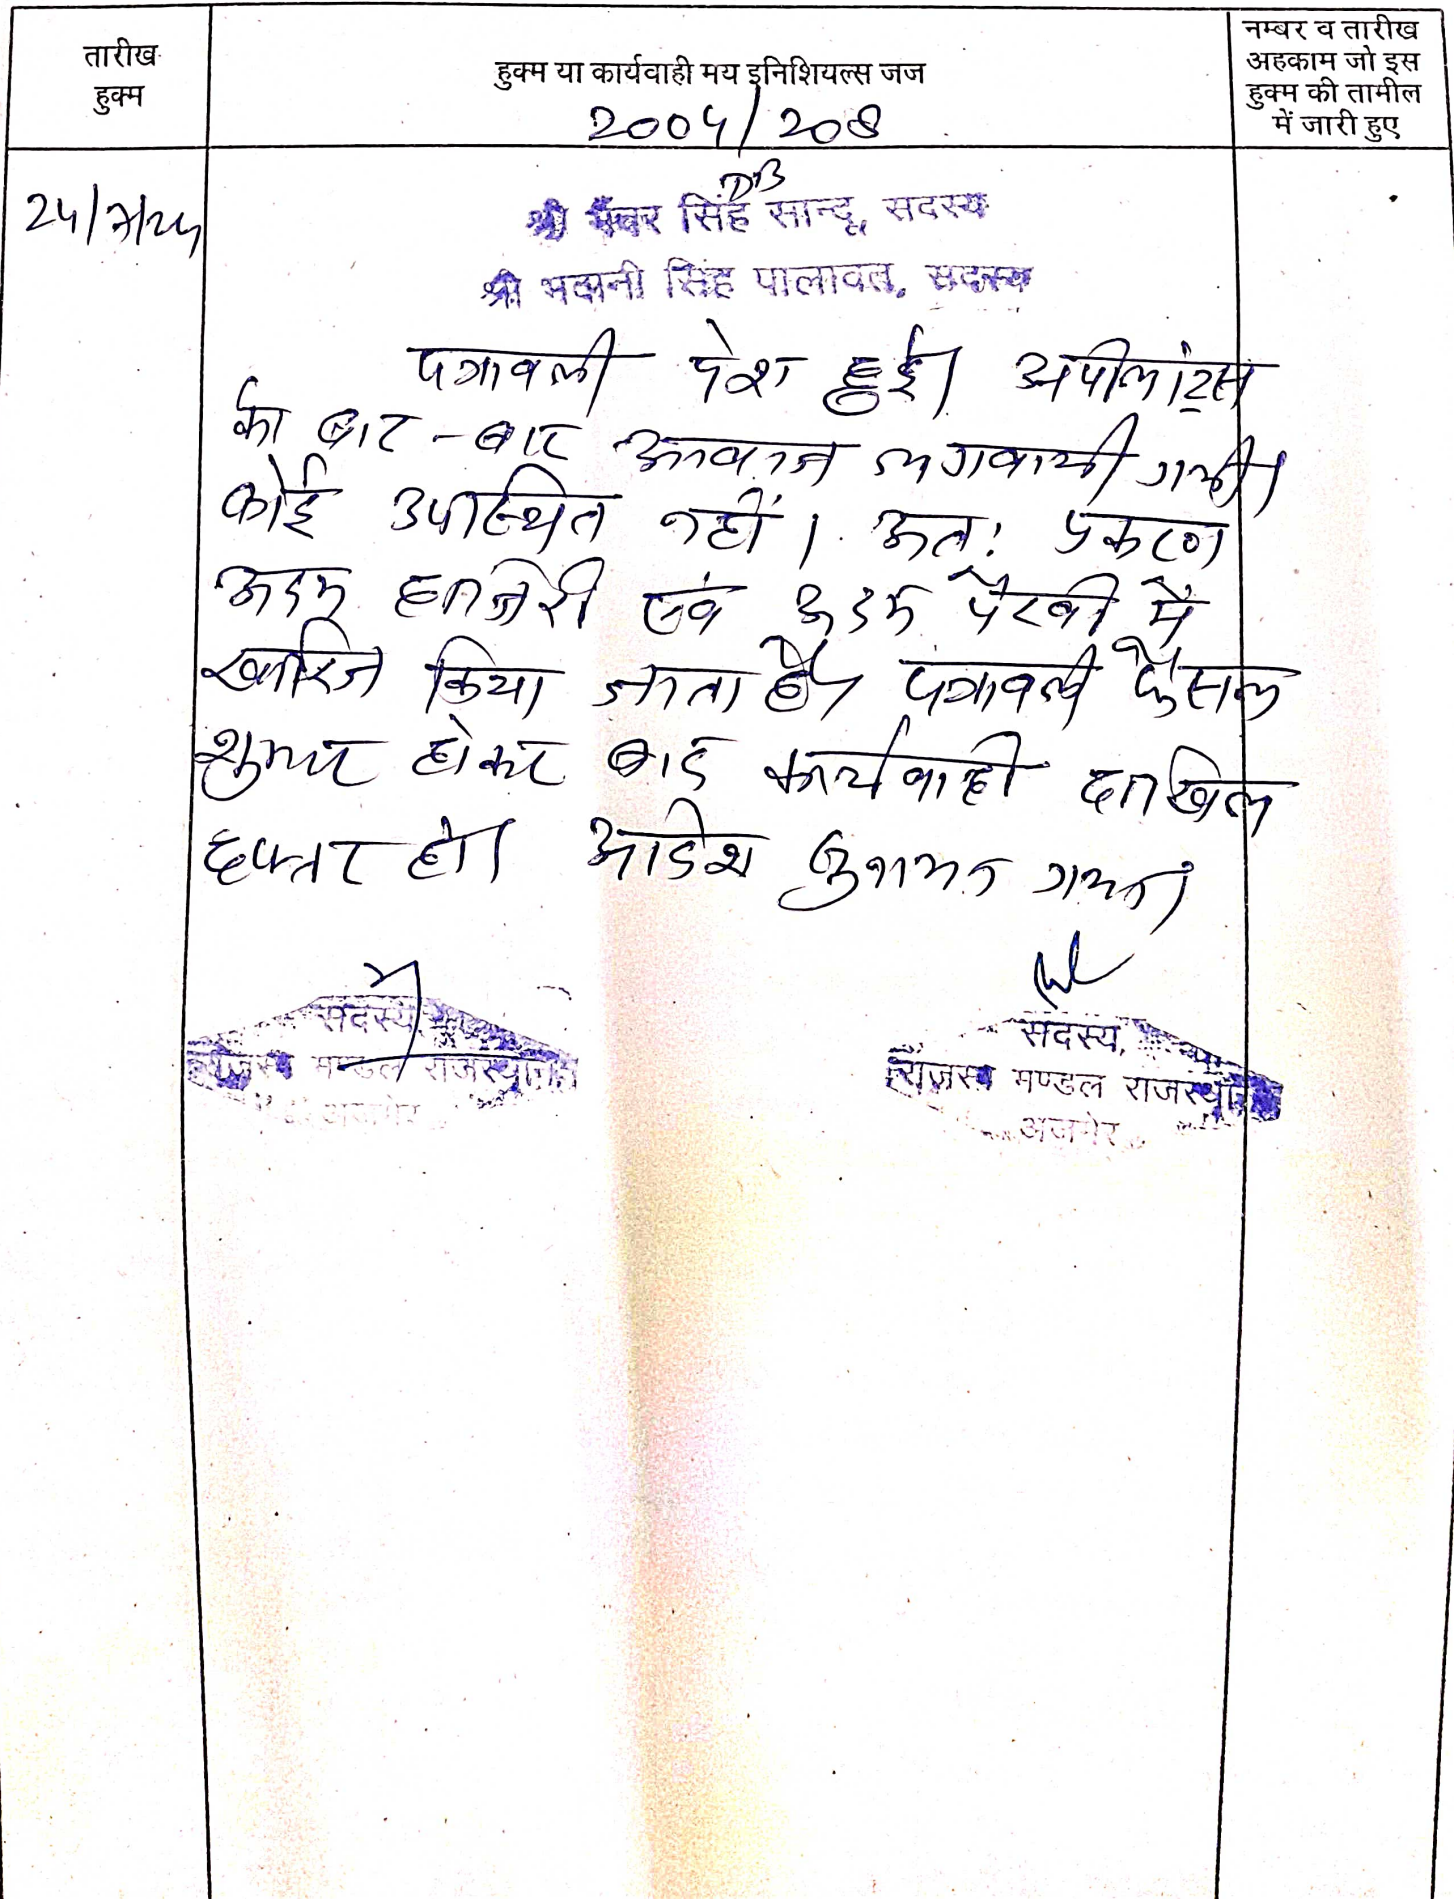 तारीख हुक्म
हुक्म या कार्यवाही मय इनिशियल्स जज
नम्बर व तारीख
अहकाम जो इस
हुक्म की तामील
में जारी हुए
2004/208
DB
श्री भंवर सिंह सान्दू, सदस्य
श्री भवानी सिंह पालावत, सदस्य
पत्रावली पेश हुई। अपीलांट्स
को बार-बार आवाज लगवायी गयी।
कोई उपस्थित नहीं। अतः प्रकरण
अदम हाजेरी एवं अदम पैरवी में
खारिज किया जाता है। पत्रावली फैसल
शुमार होकर बाद कार्यवाही दाखिल
दफ्तर हो। आदेश सुनाया गया।
सदस्य,
राजस्व मण्डल राजस्थान
अजमेर
सदस्य,
राजस्व मण्डल राजस्थान
अजमेर